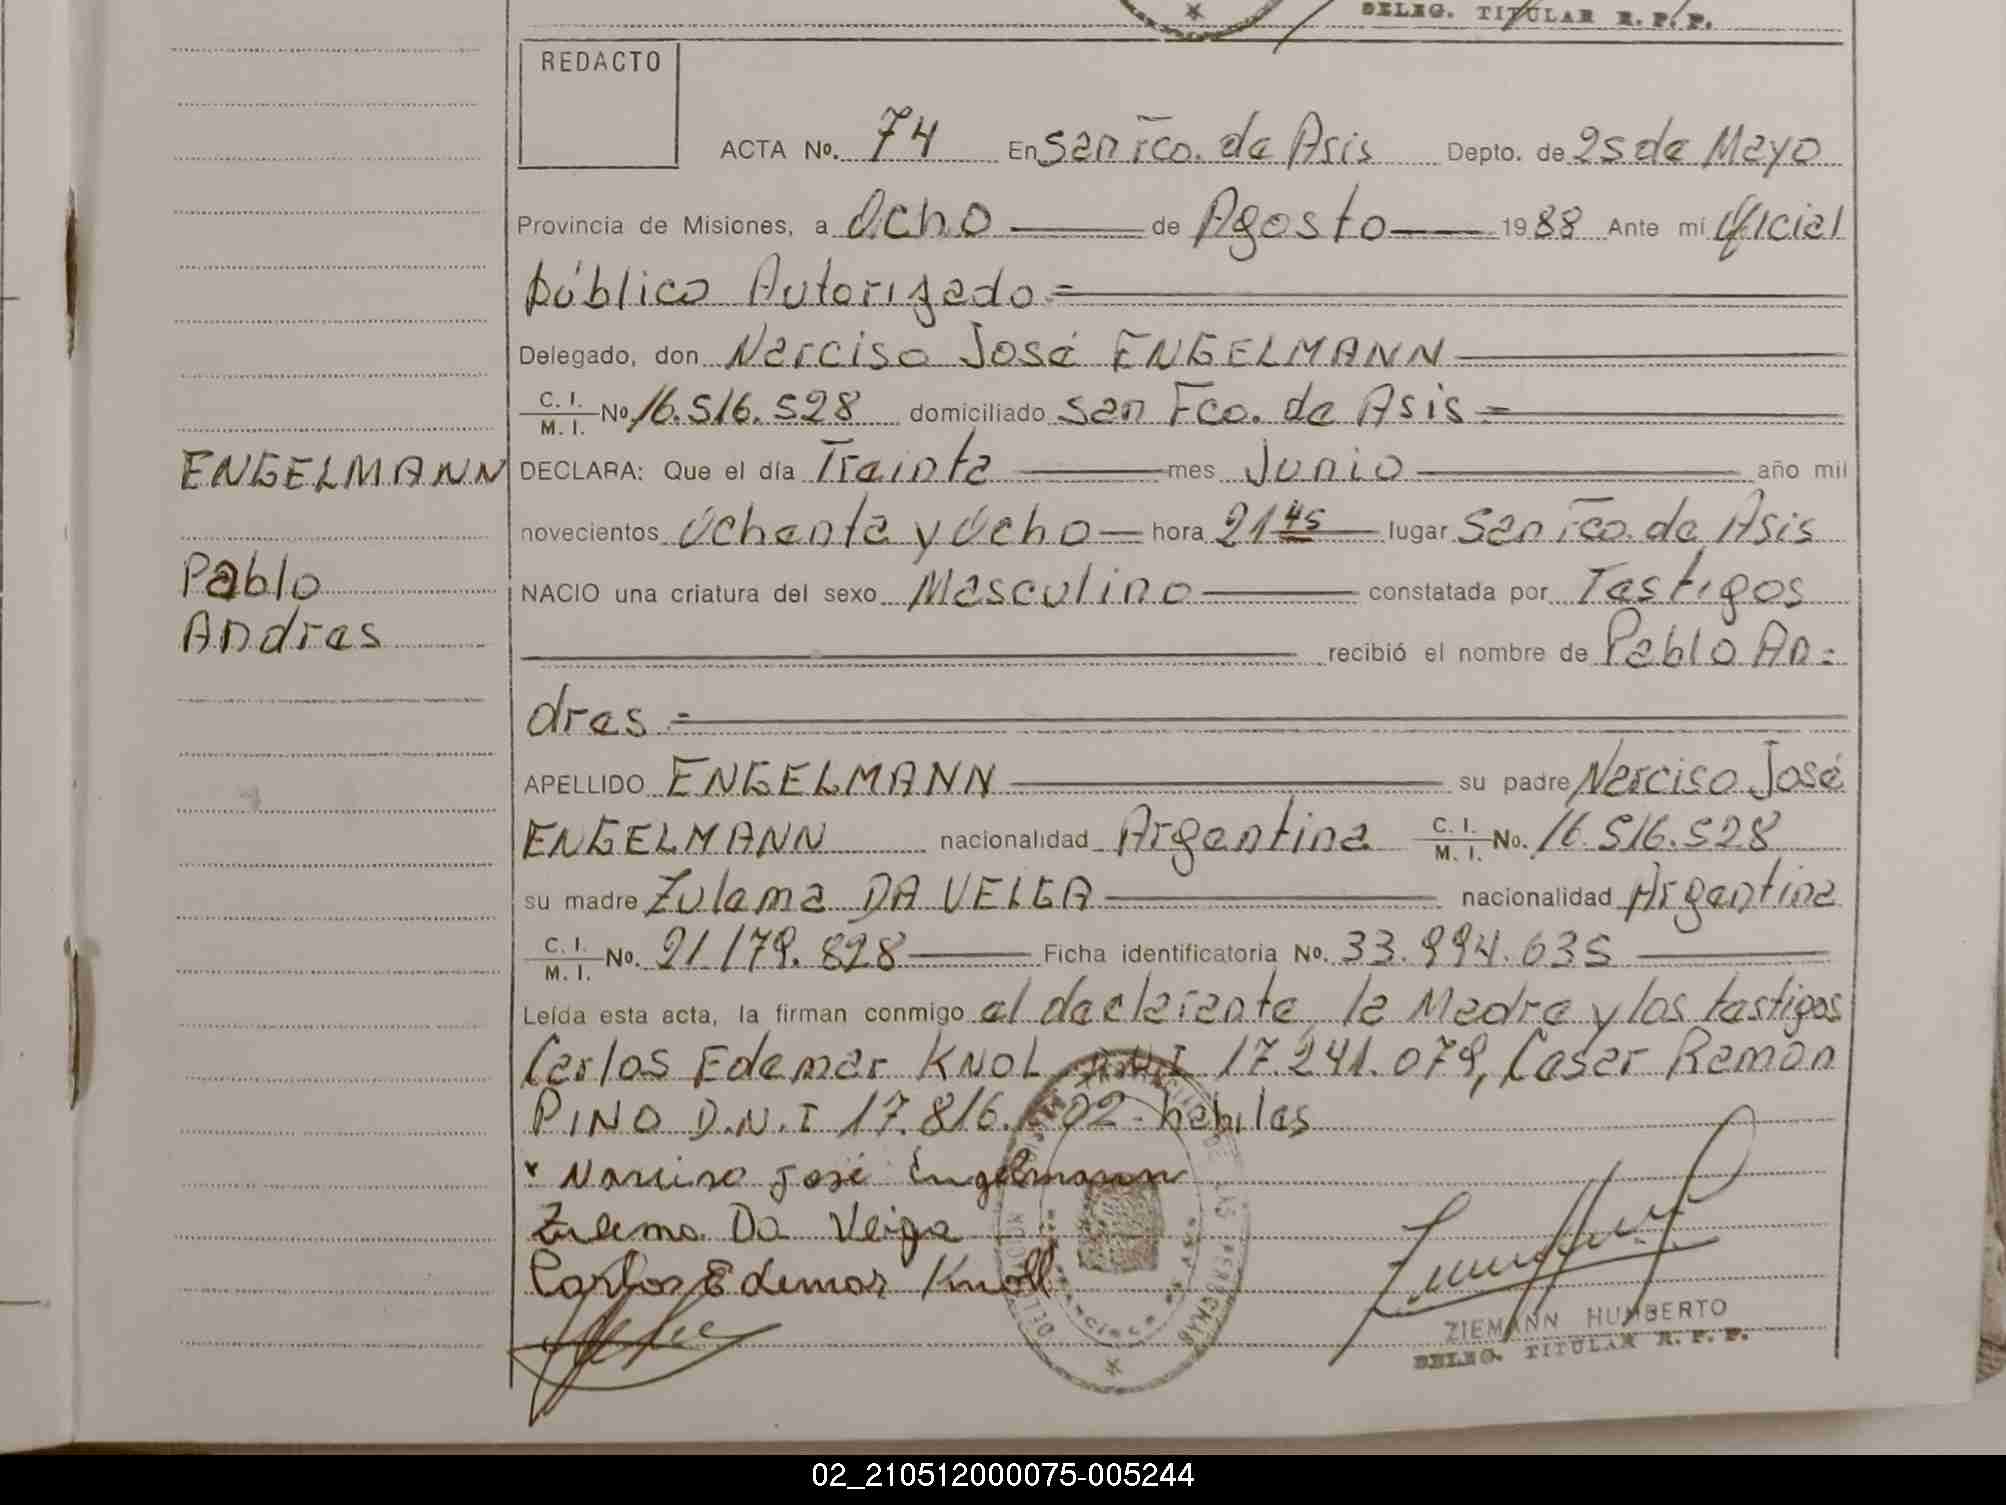 DELEG. TITULAR R. P. P.
REDACTO
ACTA No. 74 En San Fco. de Asis Depto. de 25 de Mayo
Provincia de Misiones, a Ocho de Agosto 1988 Ante mí Oficial
público Autorizado =
Delegado, don Narciso José ENGELMANN
C. I. M. I. No. 16.516.528 domiciliado San Fco. de Asis =
ENGELMANN DECLARA: Que el día Treinta mes Junio año mil
novecientos Ochenta y Ocho hora 21 45 lugar San Fco. de Asis
Pablo NACIO una criatura del sexo Masculino constatada por Testigos
Andres recibió el nombre de Pablo An=
dres =
APELLIDO ENGELMANN su padre Narciso José
ENGELMANN nacionalidad Argentina C. I. M. I. No. 16.516.528
su madre Zulema DA VEIGA nacionalidad Argentina
C. I. M. I. No. 21.179.828 Ficha identificatoria No. 33.994.635
Leída esta acta, la firman conmigo el declarante, la Madre y los testigos
Carlos Edemar KNOL D.N.I 17.241.079, Cesar Ramón
PINO D.N.I 17.816. habiles
x Narciso José Engelmann
Zulema Da Veiga
Carlos Edemar Knoll
ZIEMANN HUMBERTO
DELEG. TITULAR R. P. P.
02_210512000075-005244